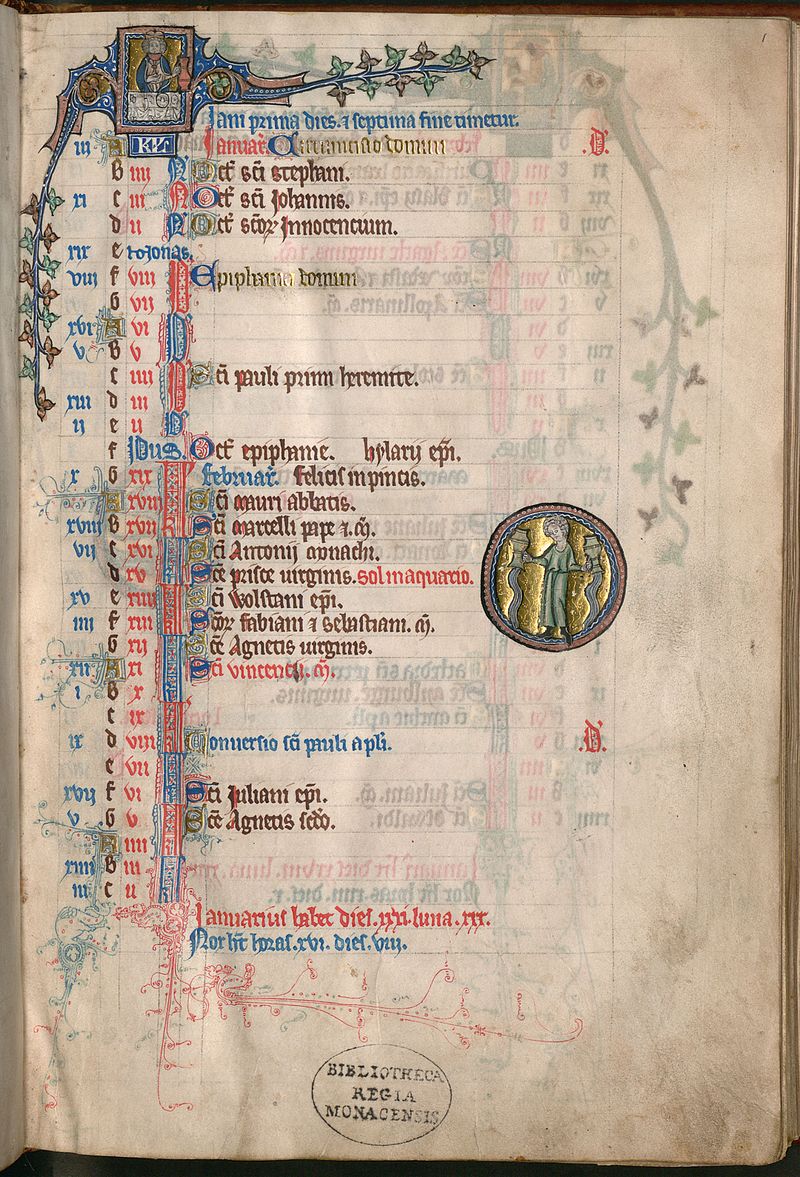 1
Jani prima dies. ⁊ septima fine timetur.
iii A KL Januar. Circumcisio domini .D.
B iiii N Oct̄ sc̄i stephani.
xi c iii N Oct̄ sc̄i Johannis.
d ii N Oct̄ sc̄oꝝ Innocencium.
xix e
viii f viii Epiphania domini
G vii
xvi A vi
v B v
c iiii Sc̄i pauli primi heremite.
xiii d iii
ii e ii
f Idus. Oct̄ epiphanie. hylarij ep̄i.
x G xix februar. felicis in pincis.
A xviii Sc̄i mauri abbatis.
xviii B xvii Sc̄i marcelli pape ⁊ m̄.
vii c xvi Sc̄i Antonij monachi.
d xv Sc̄e prisce uirginis. sol in aquario.
xv e xiiii Sc̄i wolstani ep̄i.
iiii f xiii Sc̄oꝝ fabiani ⁊ sebastiani. m̄.
G xii Sc̄e Agnetis uirginis.
xii A xi Sc̄i vincencij. m̄.
i B x
c ix
ix d viii Conuersio sc̄i pauli apl̄i. .D.
e vii
xvii f vi Sc̄i Iuliani ep̄i.
v G v Sc̄e Agnetis sc̄do.
A iiii
xiiii B iii
iii c ii
Ianuarius habet dies .xxxi. luna .xxx.
Nox ht̄ horas .xvi. dies .viii.
BIBLIOTHECA
REGIA
MONACENSIS